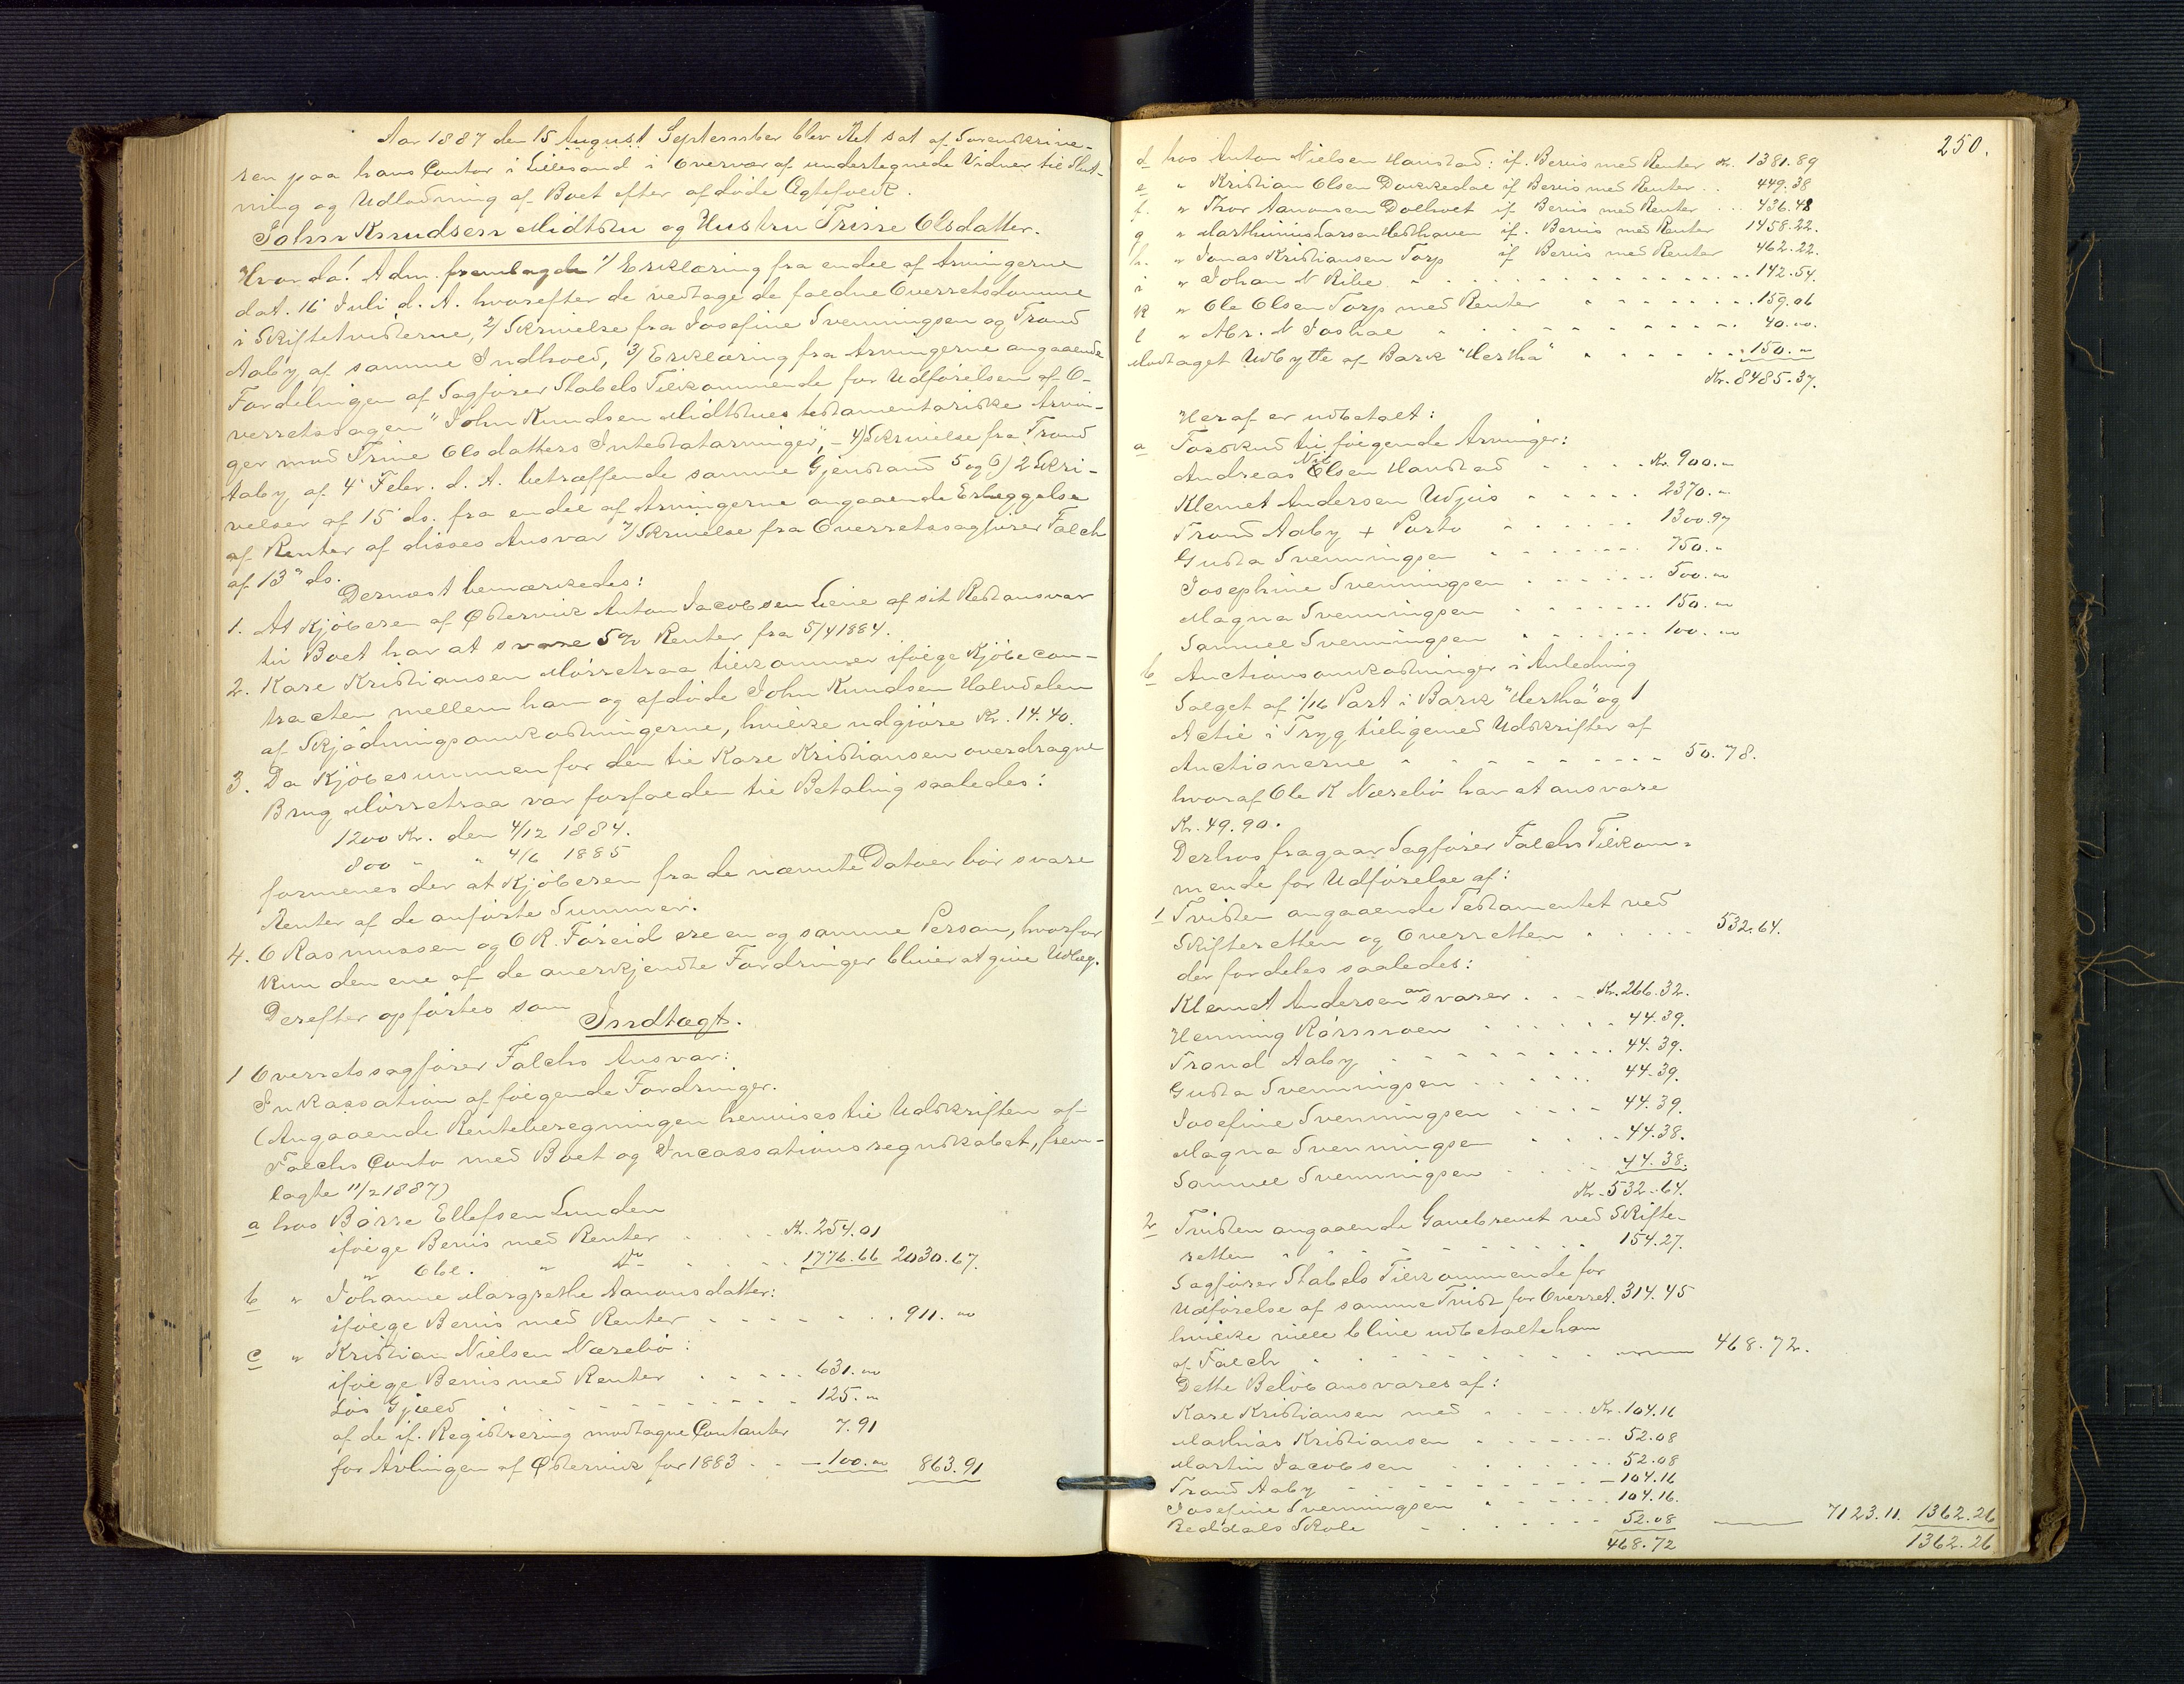 Aar 1887 den 15 August September blev Ret sat af Sorenskrive-
ren paa hans Contor i Lillesand i Overvær af undertegnede Vidner til Slut-
ning og Udlodning af Boet efter afdøde Ægtefolk.
John Knudsen Midtstu og Hustru Trine Olsdatter.
Hvorda! Adm. fremlagde 1/ Erklæring fra endel af Arvingerne
dat. 16 Juli d. A. hvorefter de vedtage de faldne Overretsdomme
i Skiftetvisterne, 2/ Skrivelse fra Josefine Svenningsen og Trond
Aaby af samme Indhold, 3/ Erklæring fra Arvingerne angaaende
Fordelingen af Sagfører Stabels Tilkommende for Udførelsen af O-
verretssagen "John Knudsen Midtstues testamentariske Arvin-
ger mod Trine Olsdatters Intestatarvinger", - 4) Skrivelse fra Trond
Aaby af 4' Febr. d. A. betræffende samme Gjenstand 5 og 6) 2 Skri-
velser af 15' ds. fra endel af Arvingerne angaaende Erlæggelse
af Renter af disses Ansvar 7) Skrivelse fra Overretssagfører Falch
af 13" ds.
Dernæst bemærkedes:
1. At Kjøberen af Østervik Anton Jacobsen Leire af sit Restansvar
til Boet har at svare 5% Renter fra 5/4 1884.
2. Kare Kristiansen Mørretraa tilkommer ifølge Kjøbecon-
tracten mellem ham og afdøde John Knudsen Halvdelen
af Skjødningsomkostningerne, hvilke udgjøre Kr. 14.40.
3. Da Kjøbesummen for den til Kare Kristiansen overdragne
Brug Mørretraa var forfalden til Betaling saaledes:
1200 Kr. den 4/12 1884.
800 " " 4/6 1885
formenes der at Kjøberen fra de nævnte Datoer bør svare
Renter af de anførte Summer.
4. O Rasmussen og O R. Føreid ere en og samme Person, hvorfor
kun den ene af de anerkjendte Fordringer bliver at give Udlæg.
Derefter opførtes som
Indtægt.
1 Overretssagfører Falchs Ansvar:
Inkassation af følgende Fordringer.
(Angaaende Renteberegningen henvises til Udskriften af
Falchs Conto med Boet og Incassationsregnskabet, frem-
lagte 11/2 1887)
a hos Børre Ellefsen Lunden
ifølge Bevis med Renter . . . . Kr. 254.01
" Obl. " Do . . . . 1776.66 2030.67.
b " Johanne Margrethe Aanonsdatter:
ifølge Bevis med Renter . . . . . . 911. "
c " Kristian Nielsen Næsebø:
ifølge Bevis med Renter . . . . . 631. "
Løs Gjæld . . . . . . . . . 125. "
af de if. Registrering modtagne Contanter 7.91
for Avlingen af Østervik for 1883 . . - 100. " 863.91
250.
d hos Anton Nielsen Haustad: if. Bevis med Renter Kr. 1381.89
e " Kristian Olsen Dokkedal if Bevis med Renter . . 449.38
f. " Thor Aanonsen Dolholt if Bevis med Renter . . . 436.48
g " Marthinius Larsen Hesthaven if. Bevis med Renter 1458.22.
h. " Jonas Kristiansen Torp if Bevis med Renter 462.22.
i " Johan N Ribe " . . . . . . . . . . . . . 142.54.
k " Ole Olsen Torp med Renter " . . . . . . . 159.06
l " Abr. N " . . . . . . . . . . 40.00.
Modtaget Udbytte af Bark "Hertha" " . . . . . . 150. "
Kr. 8485.37.
Heraf er udbetalt:
a Forskud til følgende Arvinger:
Andreas Nil Olsen Haustad . . . . Kr. 900. "
Klemet Andersen Udjus . . . . . . 2370. "
Trond Aaby + Porto . . . . . . . 1300.97
Gusta Svenningsen . . . . . . . . 750. "
Josephine Svenningsen . . . . . . . 500. "
Magna Svenningsen . . . . . . . . 150. "
Samuel Svenningsen . . . . . . . 100. "
b Auctionsomkostninger i Anledning
Salget af 1/16 Part i Bark "Hertha" og 1
Actie i Tryg tilligemed Udskrifter af
Auctionerne . . . . . . . . . . 50.78.
hvoraf Ole K Næsebø har at ansvare
Kr. 49.90.
Derhos fragaar Sagfører Falchs Tilkom-
mende for Udførelse af:
1 Tvisten angaaende Testamentet ved
Skifteretten og Overretten . . . . . 532.64.
der fordeles saaledes:
Klemet Andersen ansvarer . . . Kr. 266.32.
Henning Rørmoen . . . . . . 44.39.
Trond Aaby . . . . . . . . . 44.39.
Gusta Svenningsen . . . . . . 44.39.
Josefine Svenningsen . . . . . 44.39.
Magna Svenningsen . . . . . 44.38.
Samuel Svenningsen . . . . . 44.38.
Kr. 532.64.
2 Tvisten angaaende Gavebrevet ved Skifte-
retten . . . . . . . . . . . 154.27.
Sagfører Stabels Tilkommende for
Udførelse af samme Tvist for Overret. 314.45
hvilke ville blive udbetalte ham
af Falch . . . . . . . . . . 468.72.
Dette Beløb ansvares af:
Kare Kristiansen med . . . . . Kr. 104.16
Mathias Kristiansen . . . . . . . 52.08
Martin Jacobsen . . . . . . . . 52.08
Trond Aaby . . . . . . . . . - 104.16
Josefine Svenningsen . . . . . . . 104.16.
Reddals Skole . . . . . . . 52.08 7123.11. 1362.26
468.72 1362.26